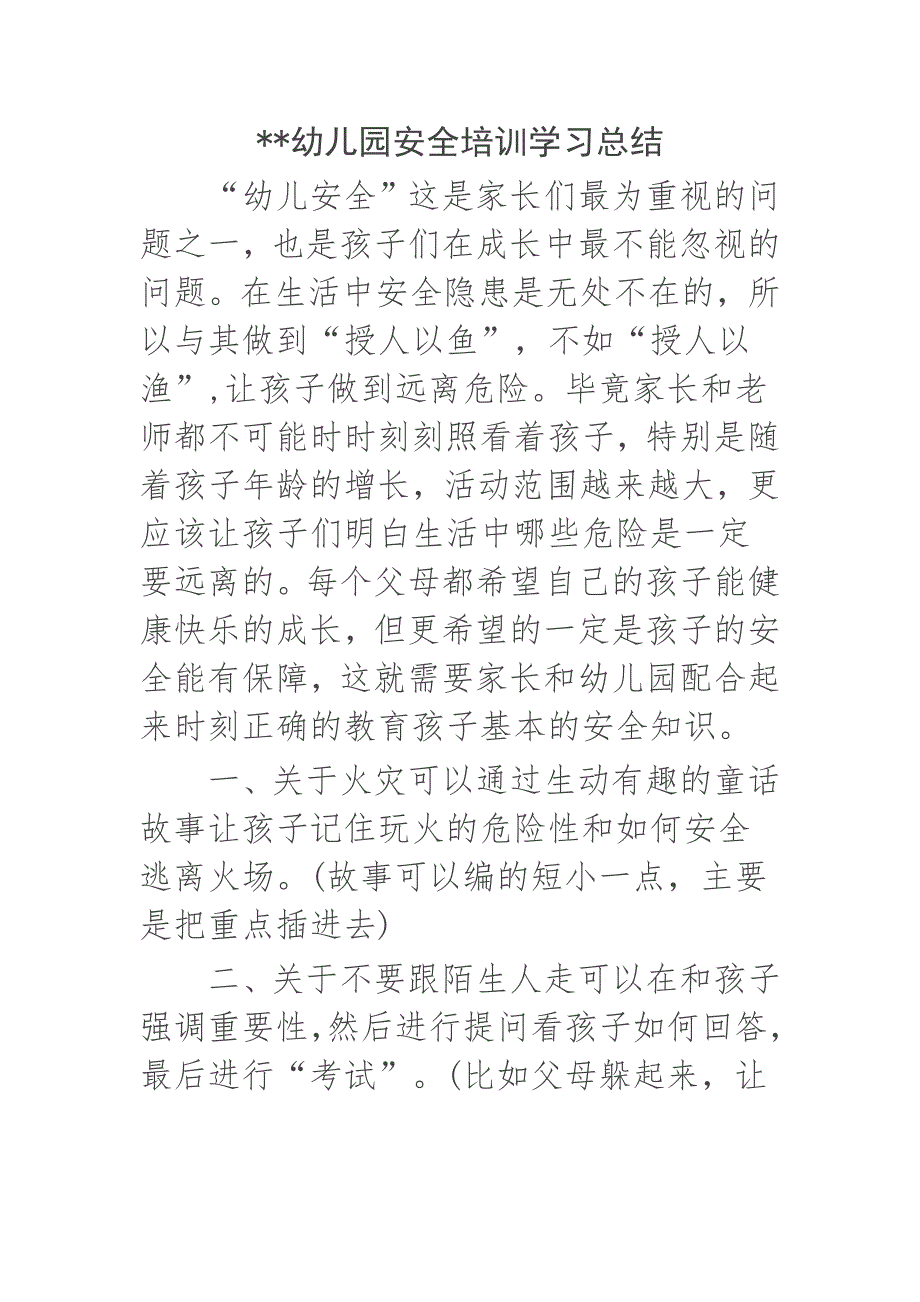 **幼儿园安全培训学习总结
“幼儿安全”这是家长们最为重视的问
题之一，也是孩子们在成长中最不能忽视的
问题。在生活中安全隐患是无处不在的，所
以与其做到“授人以鱼”，不如“授人以
渔”,让孩子做到远离危险。毕竟家长和老
师都不可能时时刻刻照看着孩子，特别是随
着孩子年龄的增长，活动范围越来越大，更
应该让孩子们明白生活中哪些危险是一定
要远离的。每个父母都希望自己的孩子能健
康快乐的成长，但更希望的一定是孩子的安
全能有保障，这就需要家长和幼儿园配合起
来时刻正确的教育孩子基本的安全知识。
一、关于火灾可以通过生动有趣的童话
故事让孩子记住玩火的危险性和如何安全
逃离火场。(故事可以编的短小一点，主要
是把重点插进去)
二、关于不要跟陌生人走可以在和孩子
强调重要性，然后进行提问看孩子如何回答，
最后进行“考试”。(比如父母躲起来，让